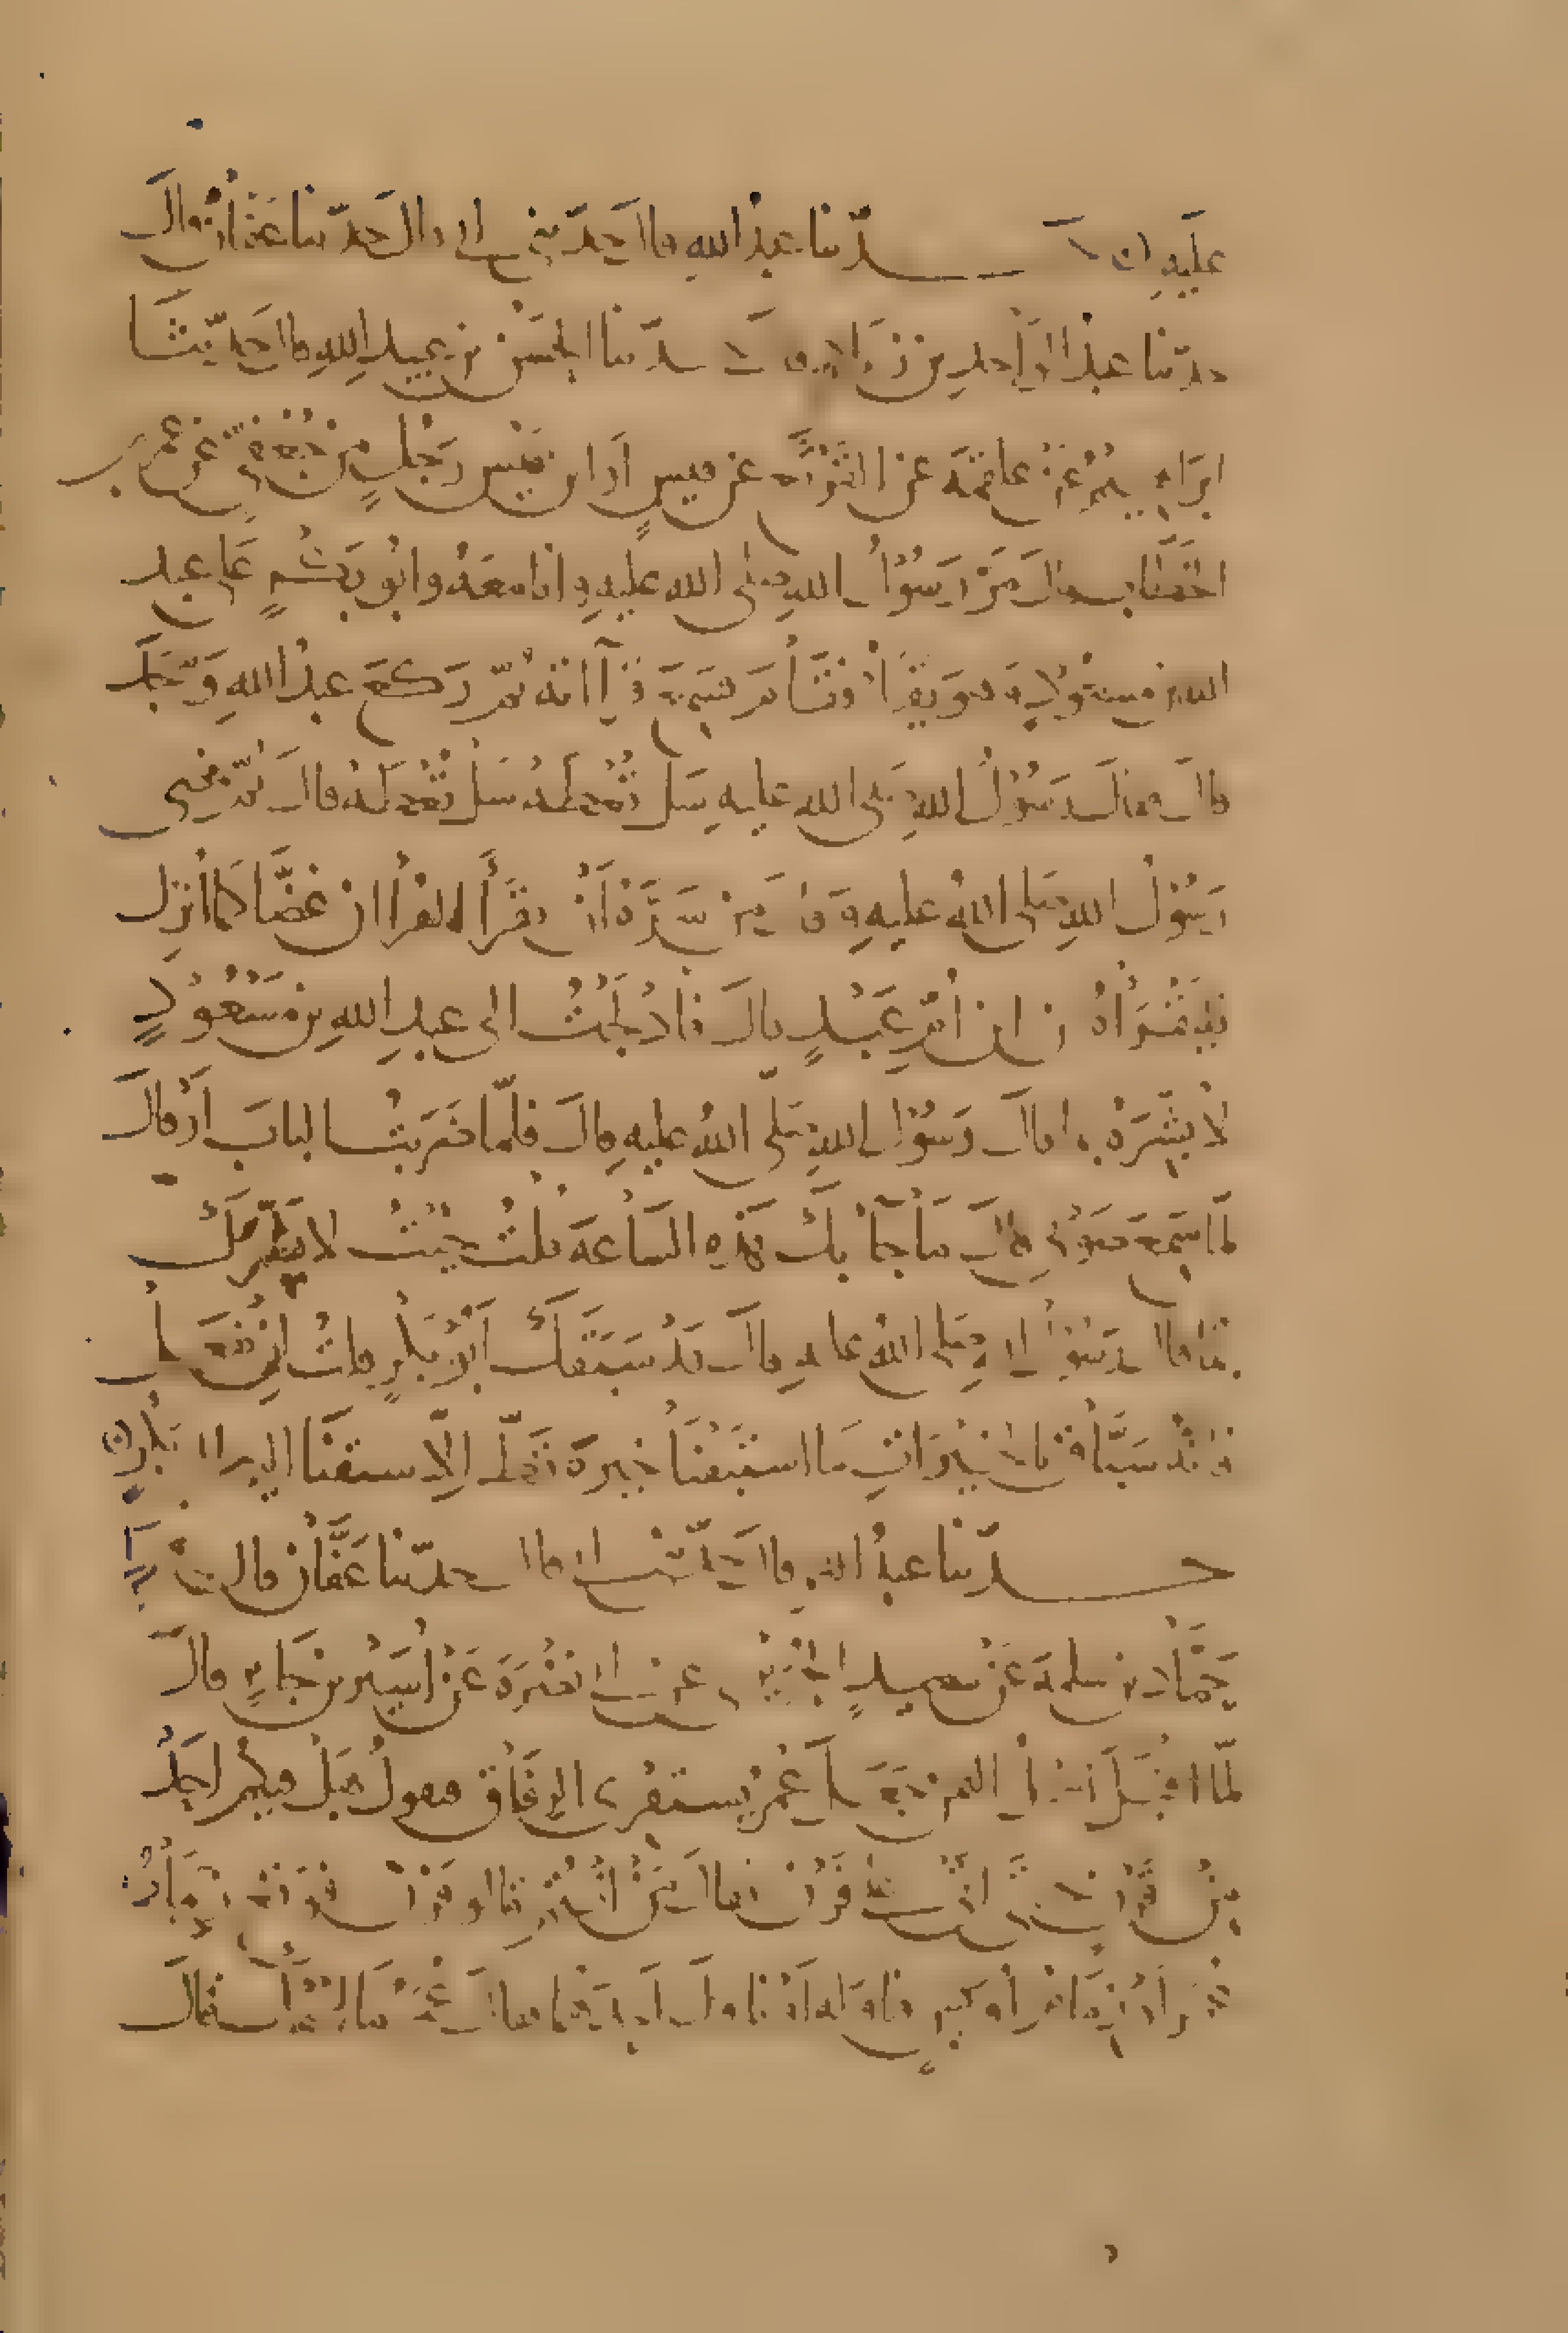 عليه حدّثنا عبدُ الله قال حدّثني ابي قال حدّثنا عفّان قالَ
حدّثنا عبدُ الواحدِ بن زياد قالَ حدّثنا الحسَنُ بن عبيد اللهِ قال حدّثنا
ابرَاهِيمُ عَنْ علقمَةَ عن القَرْثَع عن قيسٍ اَو ابن قيْسٍ رَجُلٍ مِن جُعْفِيّ عن عُمر بن
الخطّابِ قالَ مَرّ رَسُوْلُ اللهِ صَلى الله عليهِ وانا معَهُ وابُو بَكْرٍ عَلى عبد
الله بن مسعُوْدٍ وَهوَ يَقْرَأُ فقَامَ فسَمِعَ قِرَاءَتهُ ثمّ رَكعَ عبدُ اللهِ وَسَجَدَ
قالَ فقالَ رَسُوْلُ اللهِ صَلى الله عليهِ سَلْ تُعْطَهُ سَلْ تُعْطَهُ قالَ ثمّ مضى
رَسُوْلُ اللهِ صَلى اللهُ عليهِ وَقالَ مَن سَرّهُ اَنْ يقرَأَ القرْاان غَضًّا كمَا اُنزِلَ
فليَقْرَأْهُ مِن ابن اُمّ عَبْدٍ قالَ فَادْلَجْتُ الى عبدِ اللهِ بن مَسْعُوْدٍ
لاُبشّرَهُ بما قالَ رَسُوْلُ اللهِ صَلّى اللهُ عليهِ قالَ فلمّا ضَرَبْتُ البابَ اَوْ قالَ
لمّا سَمِعَ صَوْتي قالَ مَا جَآءَ بِكَ هَذِهِ السّاعَةَ قلتُ جِئْتُ لاُبَشّرَكَ
بمَا قالَ رَسُوْلُ اللهِ صَلى اللهُ عليهِ قالَ قَدْ سَبَقَكَ اَبُوْ بَكْرٍ قلتُ اِنْ يَفْعَلْ
فانهُ سَبّاقٌ بالخَيْرَاتِ مَا استَبَقْنَا خيرًا قَطُّ الّا سبقنَا اليهِ ابو بكْرٍ
حدّثنا عبدُ اللهِ قالَ حَدّثني ابي قالَ حدّثنا عَفّانُ قال حدثنا
حَمّادُ بن سلمةَ عَنْ سعيدٍ الجُرَيْرِي عن ابي نضْرَةَ عَنْ اُسَيْرِ بن جَابِرٍ قالَ
لمّا اقبَلَ اَهْلُ اليَمَنِ جَعَلَ عُمَرُ يستقرِى الرِّفَاقَ فيقولُ هَلْ فيكم اَحَدٌ
مِنْ قَرَنٍ حَتّى اتى عَلى قَرَنٍ فقالَ مَنْ اَنْتُمْ قالوا قَرَنٌ فوَقَعَ زِمَامُ
عُمَرَ اَوْ زِمَامُ اُوَيسٍ فناوَلهُ اَوْ ناولَ اَحدُهُما فقالَ عُمَرُ مَا اسْمُكَ فقالَ